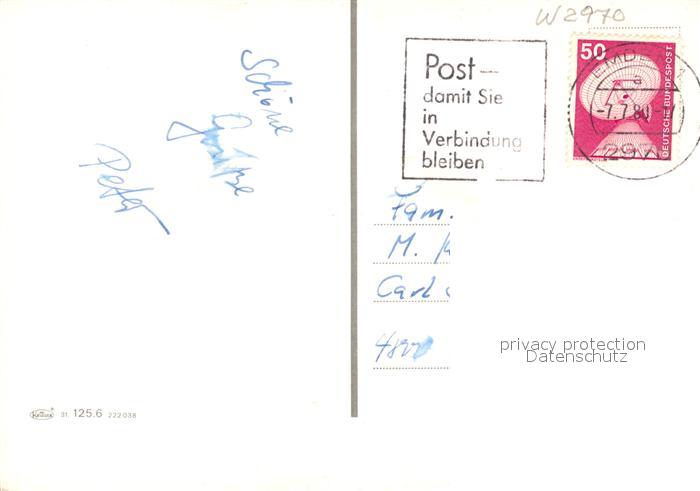 W2970
Schöne
Grüße
Peter
Post—
damit Sie
in
Verbindung
bleiben
50
DEUTSCHE BUNDESPOST
EMDEN 1
a
-7.7.80-17
297
Fam.
M.
Carl
privacy protection
Datenschutz
Krüger
31. 125.6 222038